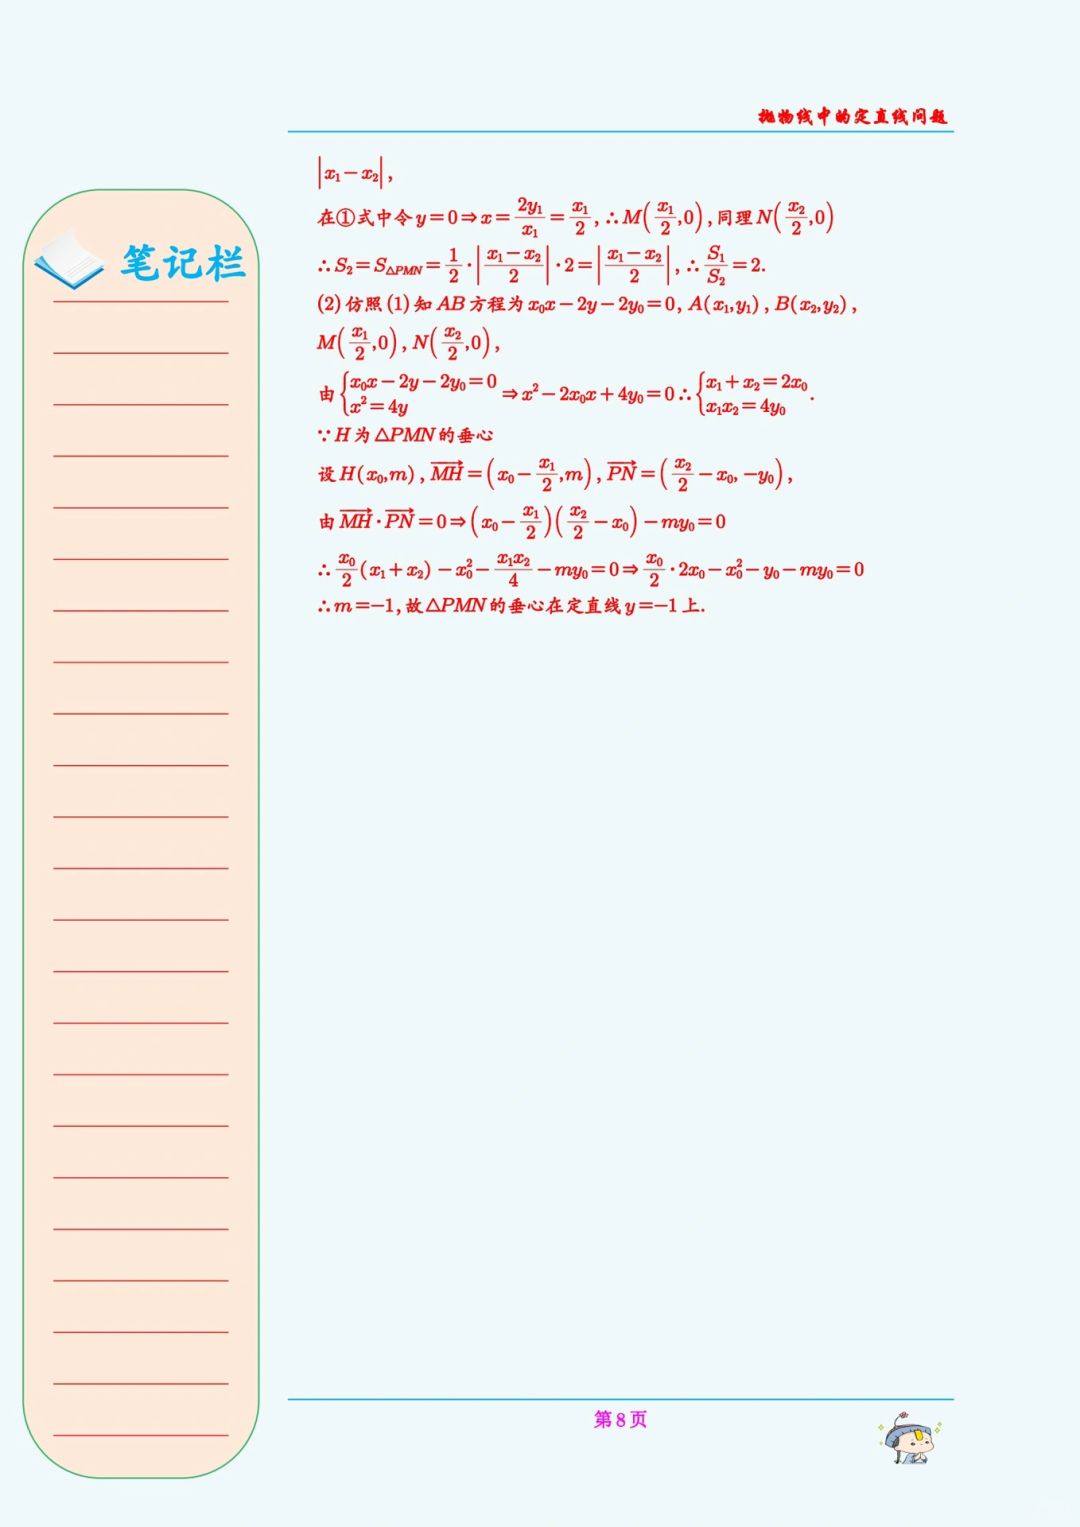 抛物线中的定直线问题
笔记栏
|x₁−x₂|,
在①式中令y=0⇒x=\frac{2y₁}{x₁}=\frac{x₁}{2},∴M(\frac{x₁}{2},0),同理N(\frac{x₂}{2},0)
∴S₂=S_{△PMN}=\frac{1}{2}·|\frac{x₁−x₂}{2}|·2=|\frac{x₁−x₂}{2}|,∴\frac{S₁}{S₂}=2.
(2)仿照(1)知AB方程为x₀x−2y−2y₀=0,A(x₁,y₁),B(x₂,y₂),
M(\frac{x₁}{2},0),N(\frac{x₂}{2},0),
由{x₀x−2y−2y₀=0 x²=4y⇒x²−2x₀x+4y₀=0∴{x₁+x₂=2x₀ x₁x₂=4y₀.
∵H为△PMN的垂心
设H(x₀,m),\overrightarrow{MH}=(x₀−\frac{x₁}{2},m),\overrightarrow{PN}=(\frac{x₂}{2}−x₀,−y₀),
由\overrightarrow{MH}·\overrightarrow{PN}=0⇒(x₀−\frac{x₁}{2})(\frac{x₂}{2}−x₀)−my₀=0
∴\frac{x₀}{2}(x₁+x₂)−x₀²−\frac{x₁x₂}{4}−my₀=0⇒\frac{x₀}{2}·2x₀−x₀²−y₀−my₀=0
∴m=−1,故△PMN的垂心在定直线y=−1上.
第8页